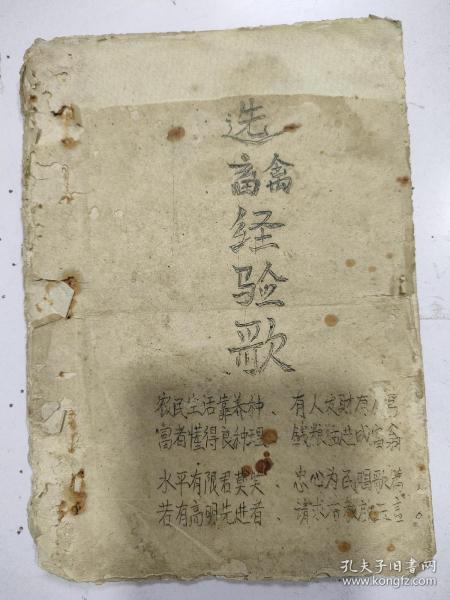 选
畜禽
经
验
歌
农民生活靠养种、有人发财有人
富者懂得良种理 钱粮
水平有限君莫笑、忠心为民唱歌篇
若有高明先进者、请
孔夫子旧书网
www.kongfz.com